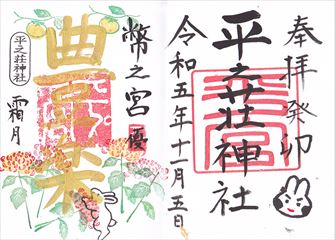 奉拝癸卯
平之荘神社
令和五年十一月五日
幣之宮
優
豊栄
平之荘神社
霜月